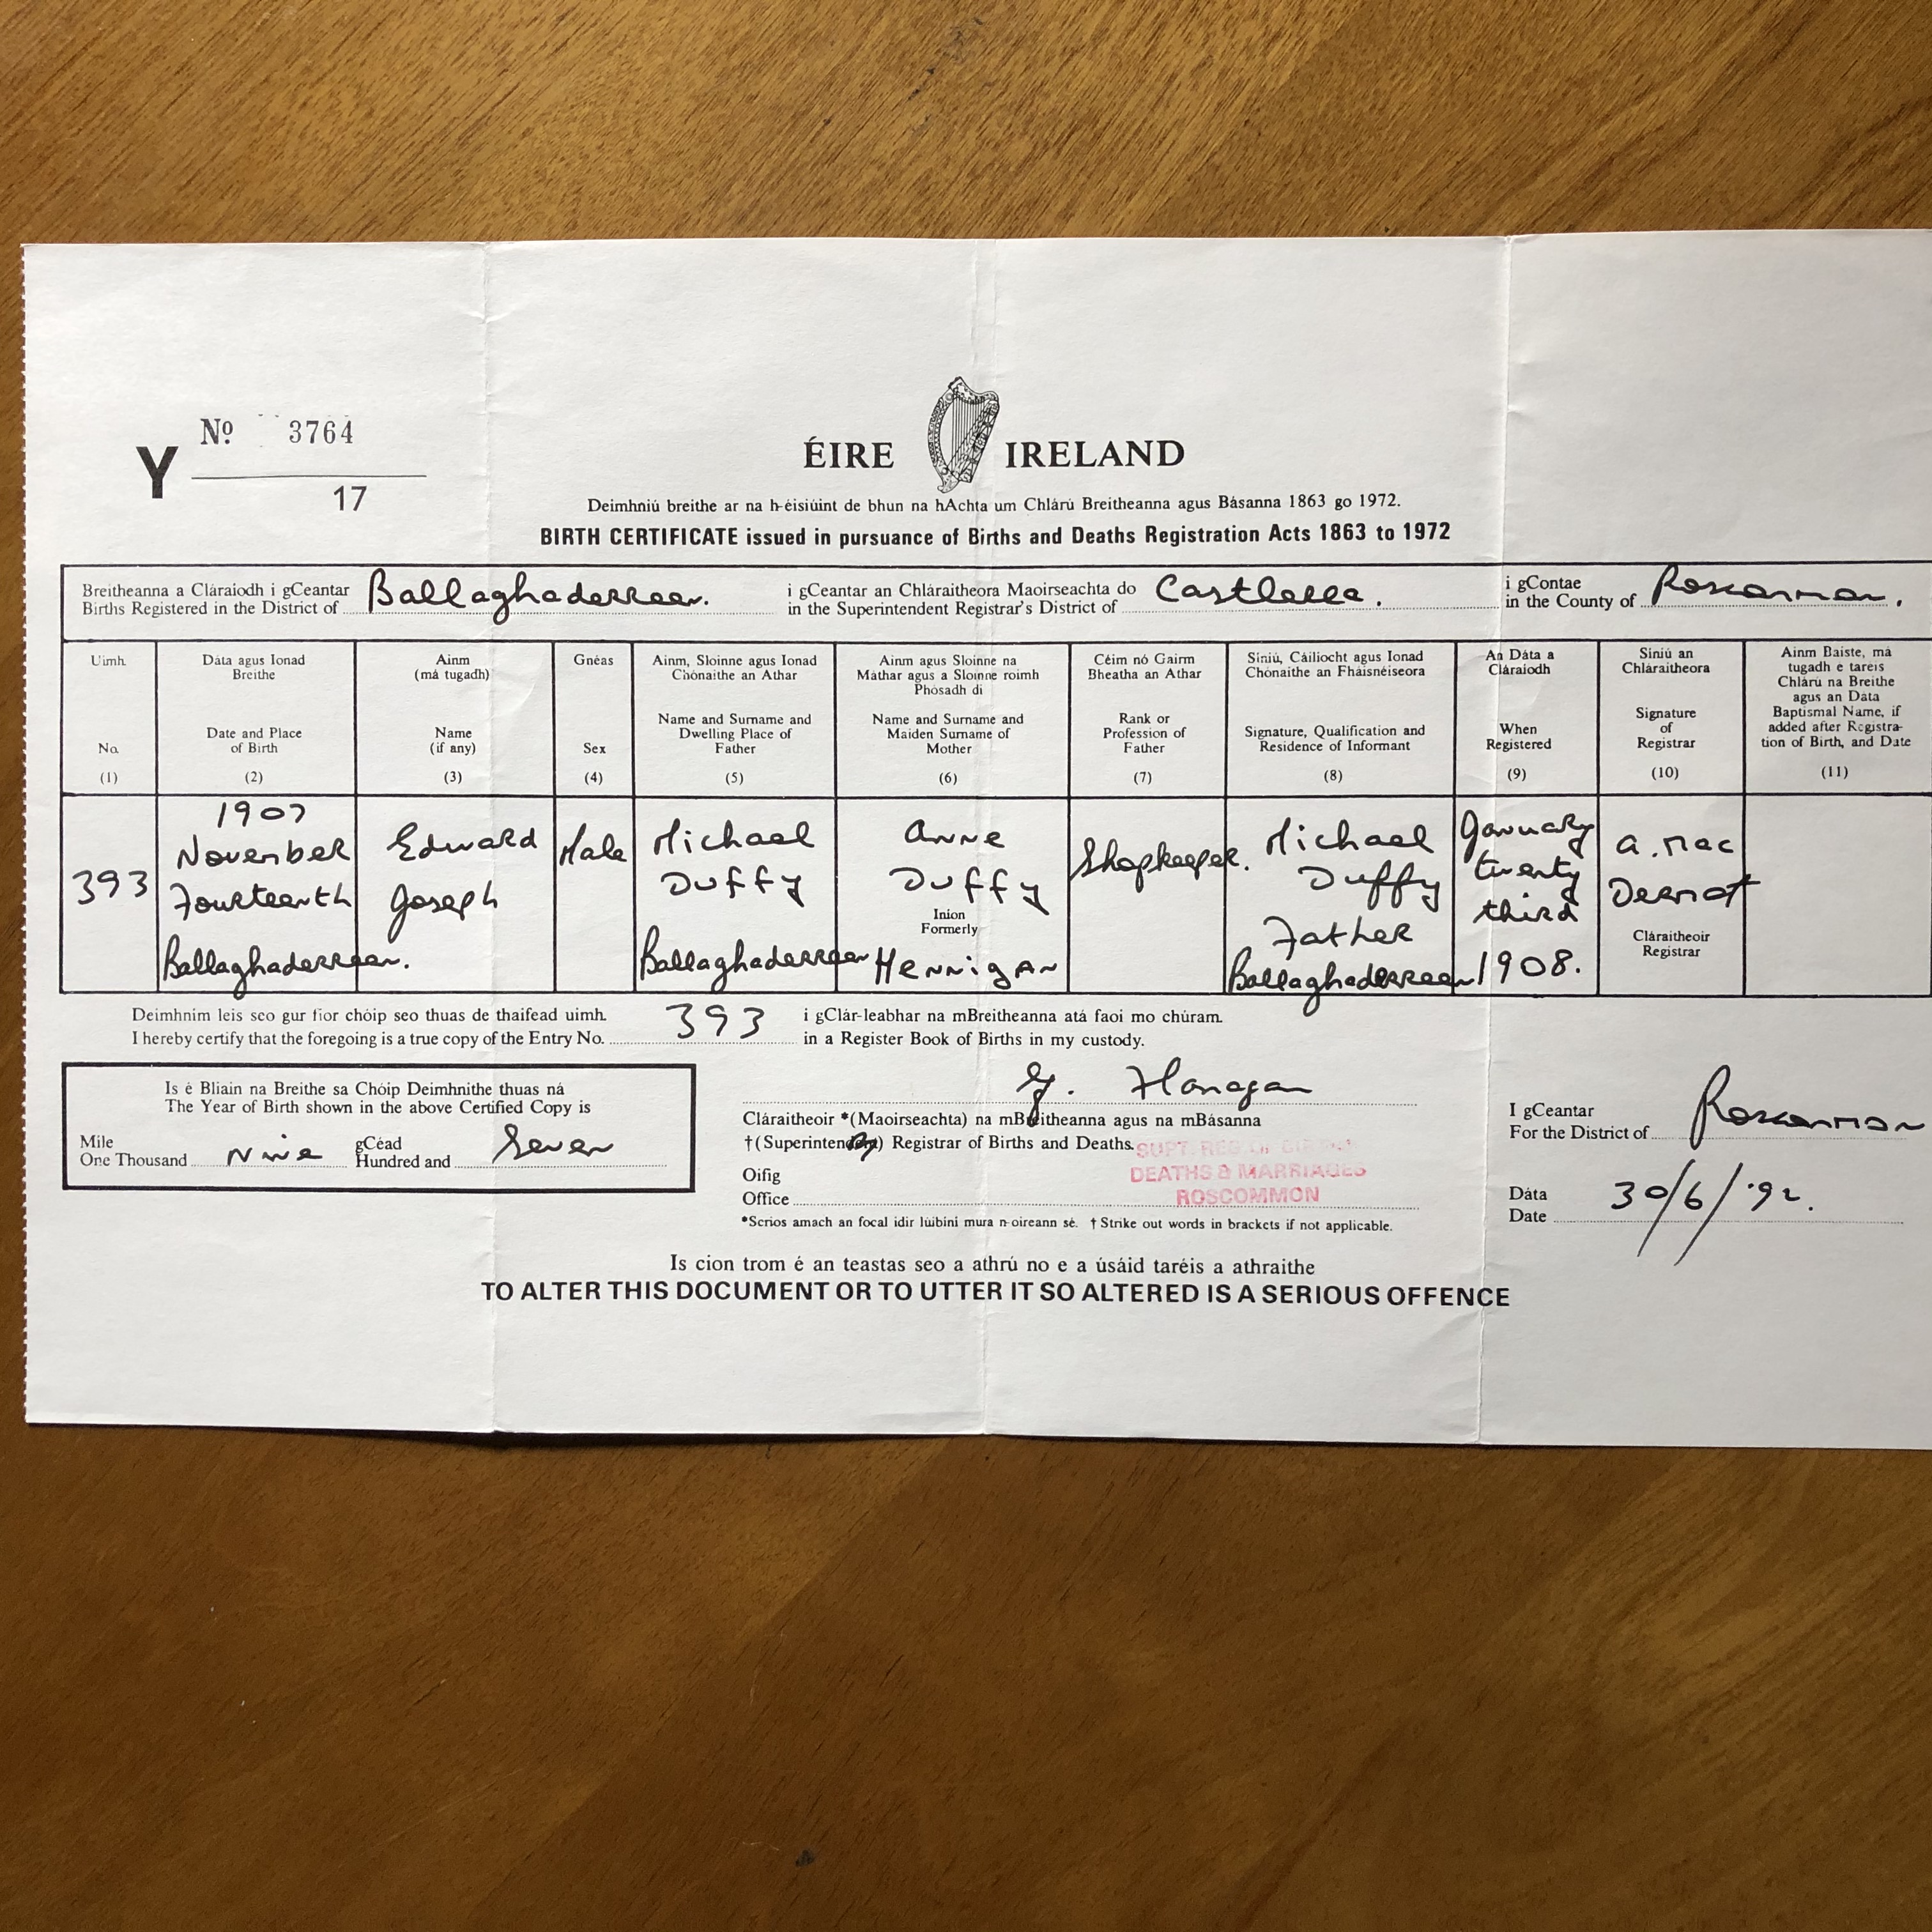 Nº 3764
Y
17
ÉIRE IRELAND
Deimhniú breithe ar na h-éisiúint de bhun na hAchta um Chlárú Breitheanna agus Básanna 1863 go 1972.
BIRTH CERTIFICATE issued in pursuance of Births and Deaths Registration Acts 1863 to 1972
Breitheanna a Cláraíodh i gCeantar
Births Registered in the District of Ballaghaderreen.
i gCeantar an Chláraitheora Maoirseachta do
in the Superintendent Registrar's District of Castlerea.
i gContae
in the County of Roscommon.
Uimh.
No.
(1)
Dáta agus Ionad
Breithe
Date and Place
of Birth
(2)
Ainm
(má tugadh)
Name
(if any)
(3)
Gnéas
Sex
(4)
Ainm, Sloinne agus Ionad
Chónaithe an Athar
Name and Surname and
Dwelling Place of
Father
(5)
Ainm agus Sloinne na
Máthar agus a Sloinne roimh
Phósadh di
Name and Surname and
Maiden Surname of
Mother
(6)
Céim nó Gairm
Bheatha an Athar
Rank or
Profession of
Father
(7)
Síniú, Cáilíocht agus Ionad
Chónaithe an Fhaisnéiseora
Signature, Qualification and
Residence of Informant
(8)
An Dáta a
Cláraíodh
When
Registered
(9)
Síniú an
Chláraitheora
Signature
of
Registrar
(10)
Ainm Baiste, má
tugadh é taréis
Chlárú na Breithe
agus an Dáta
Baptismal Name, if
added after Registra-
tion of Birth, and Date
(11)
393
1907
November
Fourteenth
Ballaghaderreen.
Edward
Joseph
Male
Michael
Duffy
Ballaghaderreen
Anne
Duffy
Iníon
Formerly
Hennigan
Shopkeeper.
Michael
Duffy
Father
Ballaghaderreen
January
twenty
third
1908.
A. Mac
Dermot
Cláraitheoir
Registrar
Deimhním leis seo gur fíor chóip seo thuas de thaifead uimh. 393 i gClár-leabhar na mBreitheanna atá faoi mo chúram.
I hereby certify that the foregoing is a true copy of the Entry No. in a Register Book of Births in my custody.
Is é Bliain na Breithe sa Chóip Deimhnithe thuas ná
The Year of Birth shown in the above Certified Copy is
Míle gCéad
One Thousand Nine Hundred and Seven
G. Flanagan
Cláraitheoir *(Maoirseachta) na mBreitheanna agus na mBásanna
†(Superintendent) Registrar of Births and Deaths.
Oifig
Office
SUPT. REG. OF
DEATHS & MARRIAGES
ROSCOMMON
*Scrios amach an focal idir lúibíní mura n-oireann sé. † Strike out words in brackets if not applicable.
I gCeantar
For the District of Roscommon
Dáta
Date 30/6/'92.
Is cion trom é an teastas seo a athrú no e a úsáid taréis a athraithe
TO ALTER THIS DOCUMENT OR TO UTTER IT SO ALTERED IS A SERIOUS OFFENCE